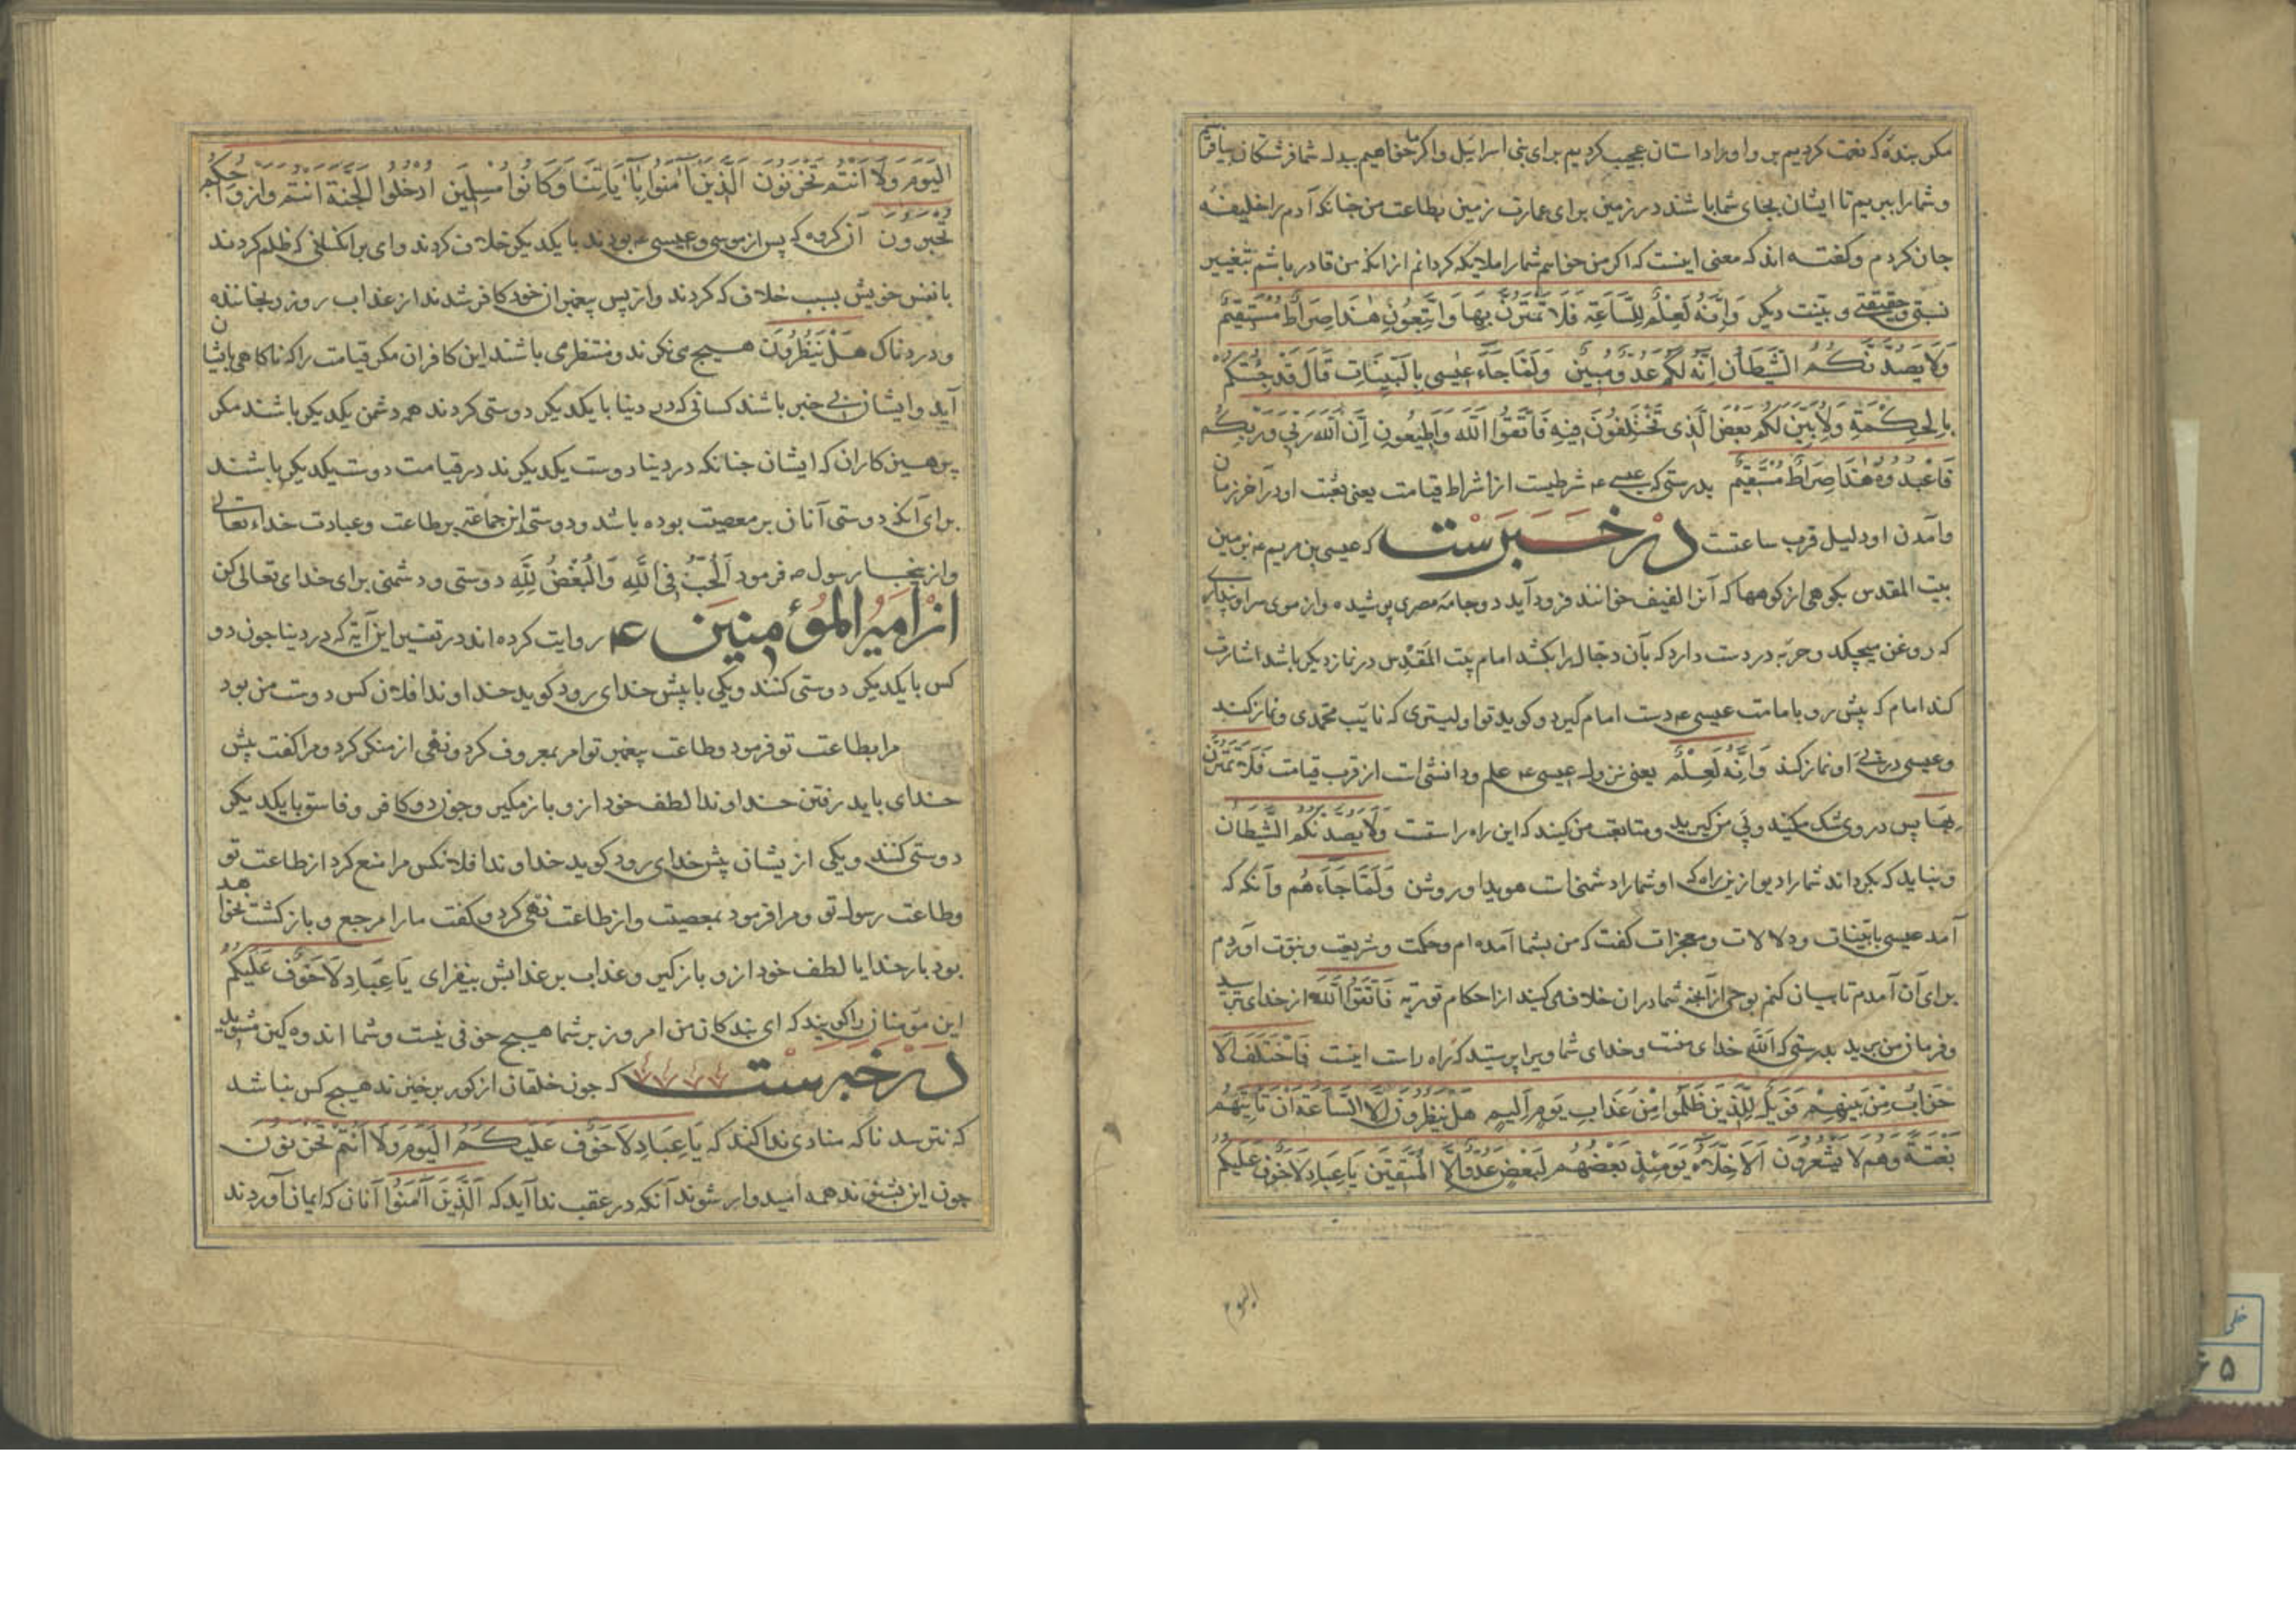 مکر بندهٔ که نعمت کردیم بر وا و اورا داستان عجیب کردیم برای بنی اسرائیل واکر ما خواهیم بدل شما فرشتکان بیافرینیم
وشمارا ببریم تا ایشان بجای شما باشند در زمین برای عمارت زمین بطاعت من جنانکه آدم را خلیفه
جان کردم وکفته اند که معنی اینست که اکر من خواهم شمارا ملایکه کردانم از انکه من قادر باشم بتغییر
نسبتی وحقیقتی و بنیت دیکر وَاِنَّهُ لَعِلْمٌ لِلسَّاعَةِ فَلَا تَمْتَرُنَّ بِهَا وَاتَّبِعُونِ هٰذَا صِرَاطٌ مُسْتَقِیمٌ
وَلَا یَصُدَّنَّکُمُ الشَّیْطَانُ اِنَّهُ لَکُمْ عَدُوٌّ مُبِینٌ وَلَمَّا جَاءَ عِیسٰی بِالْبَیِّنَاتِ قَالَ قَدْ جِئْتُکُمْ
بِالْحِکْمَةِ وَلِاُبَیِّنَ لَکُمْ بَعْضَ الَّذِی تَخْتَلِفُونَ فِیهِ فَاتَّقُوا اللّٰهَ وَاَطِیعُونِ اِنَّ اللّٰهَ رَبِّی وَرَبُّکُمْ
فَاعْبُدُوهُ هٰذَا صِرَاطٌ مُسْتَقِیمٌ بدرستی که عیسی ع شرطیست از اشراط قیامت یعنی بعثت او در آخر زمان
وآمدن او دلیل قرب ساعتست در خبرست که عیسی بن مریم ع بزمین
بیت المقدس بکوهی از کوهها که آنرا لفیف خوانند فرود آید دوجامه مصری پوشیده وازموی سر او بنداری
که روغن میچکد وحربه در دست دارد که بآن دجال را بکشد امام بیت المقدس در نماز دیکر باشد اشارت
کند امام که پیش رو بامامت عیسی ع دست امام کیرد وکوید تو اولیتری که نایب محمدی ونماز کند
وعیسی در پی او نماز کند وَاِنَّهُ لَعِلْمٌ یعنی نزول عیسی ع علم ودانشی است از قرب قیامت فَلَا تَمْتَرُنَّ
بِهَا پس در وی شک مکنید وپی من کیرید ومتابعت من کنید که این راه راستت وَلَا یَصُدَّنَّکُمُ الشَّیْطَانُ
ونباید که بکرداند شمارا دیو از ین راه که او شمارا دشمنی است هویدا وروشن وَلَمَّا جَاءَهُم وآنکه که
آمد عیسی بابینات ودلالات ومعجزات کفت که من بشما آمده ام وحکمت وشریعت ونبوت آوردم
برای آن آمدم تا بیان کنم بوحی از آنچه شما در ان خلاف می کنید از احکام توریة فَاتَّقُوا اللّٰهَ از خدای بترسید
وفرمان من برید بدرستی که اللّٰه خدای منت وخدای شما ویرا پرستید که راه راست اینت فَاخْتَلَفَ الْاَ
حْزَابُ مِنْ بَیْنِهِمْ فَوَیْلٌ لِلَّذِینَ ظَلَمُوا مِنْ عَذَابِ یَوْمٍ اَلِیمٍ هَلْ یَنْظُرُونَ اِلَّا السَّاعَةَ اَنْ تَاْتِیَهُمْ
بَغْتَةً وَهُمْ لَا یَشْعُرُونَ اَلْاَخِلَّاءُ یَوْمَئِذٍ بَعْضُهُمْ لِبَعْضٍ عَدُوٌّ اِلَّا الْمُتَّقِینَ یَا عِبَادِ لَا خَوْفٌ عَلَیْکُمُ
الیوم
الْیَوْمَ وَلَا اَنْتُمْ تَحْزَنُونَ اَلَّذِینَ آمَنُوا بِآیَاتِنَا وَکَانُوا مُسْلِمِینَ اُدْخُلُوا الْجَنَّةَ اَنْتُمْ وَاَزْوَاجُکُمْ
تُحْبَرُونَ آن کروه که پس از موسی وعیسی ع بودند با یکدیکر خلاف کردند وای بر انکسانی که ظلم کردند
با نفس خویش بسبب خلاف که کردند واز پس پیغمبر از خود کافر شدند از عذاب روز رنجاننده
ودردناک هَلْ یَنْظُرُونَ هیچ می نکرند ومنتظر می باشند این کافران مکر قیامت را که ناکاهی بایشان
آید وایشان بی خبر باشند کسانی که در دنیا با یکدیکر دوستی کردند همه دشمن یکدیکر باشند مکر
پرهیزکاران که ایشان جنانکه در دنیا دوست یکدیکرند در قیامت دوست یکدیکر باشند
برای آنکه دوستی آنان بر معصیت بوده باشد ودوستی این جماعت بر طاعت وعبادت خداء تعالی
واز ینجا رسول ص فرمود اَلْحُبُّ فِی اللّٰهِ وَالْبُغْضُ لِلّٰهِ دوستی ودشمنی برای خدای تعالی کن
از امیر المؤمنین ع روایت کرده اند در تفسیر این آیة که در دنیا جون دو
کس با یکدیکر دوستی کنند ویکی با پیش خدای رود کوید خداوندا فلان کس دوست من بود
مرا بطاعت تو فرمود وطاعت پیغمبر تو امر بمعروف کرد ونهی از منکر کرد ومرا کفت پیش
خدای باید رفتن خداوندا لطف خود از و باز مکیر وجون دو کافر وفاسق با یکدیکر
دوستی کنند ویکی از یشان پیش خدای رود کوید خداوندا فلانکس مرا منع کرد از طاعت تو
وطاعت رسول تو ومرا فرمود بمعصیت واز طاعت نهی کرد وکفت مارا مرجع وبازکشت نخواهد
بود بار خدایا لطف خود از و باز کیر وعذاب بر عذابش بیفزای یَا عِبَادِ لَا خَوْفٌ عَلَیْکُمُ
این مؤمنان را کویند که ای بندکان من امروز بر شما هیچ خوفی نیست وشما اندوهکین مشوید
در خبرست که جون خلقان از کور برخیزند هیچ کس نباشد
که نترسد ناکه منادی ندا کند که یَا عِبَادِ لَا خَوْفٌ عَلَیْکُمُ الْیَوْمَ وَلَا اَنْتُمْ تَحْزَنُونَ
جون این بشنوند همه امیدوار شوند آنکه در عقب ندا آید که اَلَّذِینَ آمَنُوا آنان که ایمان آوردند